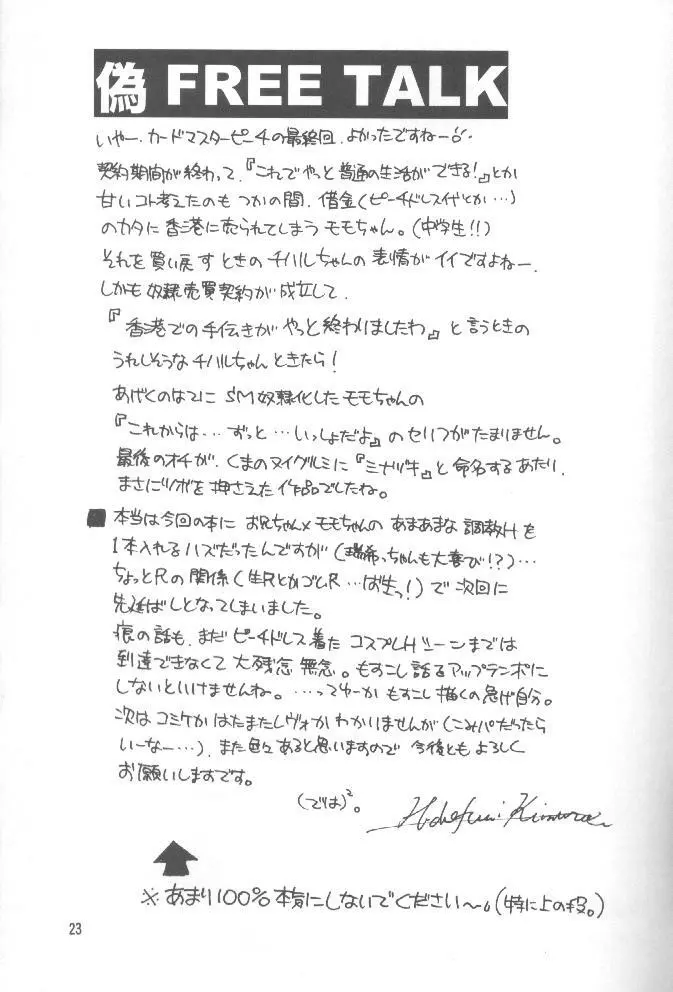 偽 FREE TALK
いやー、カードマスターピーチの最終回、よかったですねー
契約期間が終わって、『これでやっと普通の生活ができる!』とか
甘いコト考えたのもつかの間、借金(ピーチドレス代とか…)
のカタに香港に売られてしまうモモちゃん。(中学生!!)
それを買い戻すときのチハルちゃんの表情がイイですよねー。
しかも奴隷売買契約が成立して、
『香港での手伝きがやっと終わりましたわ』と言うときの
うれしそうなチハルちゃんときたら!
あげくのはてに SM奴隷化したモモちゃんの
『これからは…ずっと…いっしょだよ』のセリフがたまりません。
最後のオチが、くまのヌイグルミに『ミナヅキ』と命名するあたり、
まさにツボを押さえた作品でしたね。
■ 本当は今回の本に お兄ちゃん×モモちゃんの あまあまな調教Hを
1本入れるハズだったんですが(瑞希っちゃんも大喜び!?)…
ちょっとRの関係(生RとかゴムR…ば生っ!)で次回に
先延ばしとなってしまいました。
痕の話も、まだピーチドレス着た コスプレHシーンまでは
到達できなくて 大残念無念。もすこし話をアップテンポに
しないといけませんね。…ってゆーか もすこし描くの急げ自分。
次はコミケか はたまたレヴォか わかりませんが(こみパだったら
いーなー…)、また色々あると思いますので 今後ともよろしく
お願いしますです。
(では)²。
※あまり100%本気にしないでください〜。(特に上の段。)
23